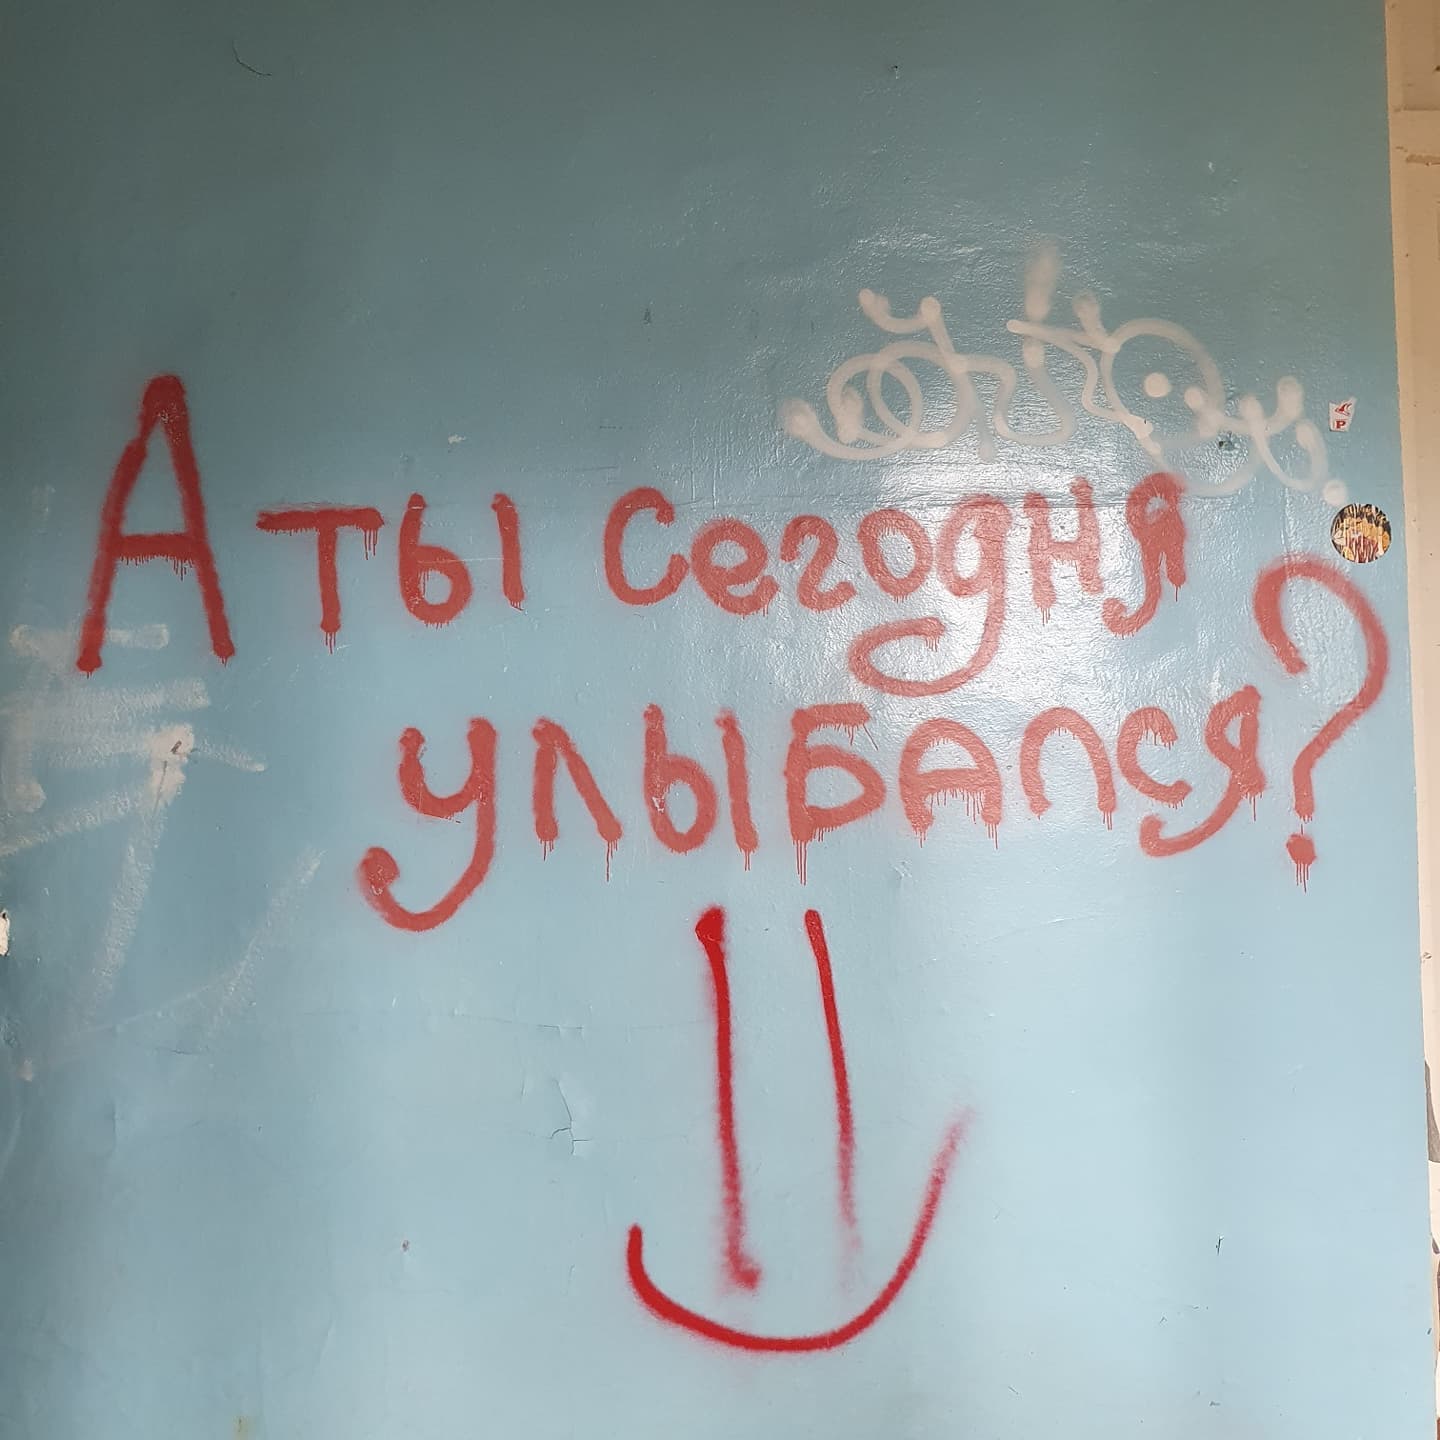 А ты сегодня
улыбался?
P